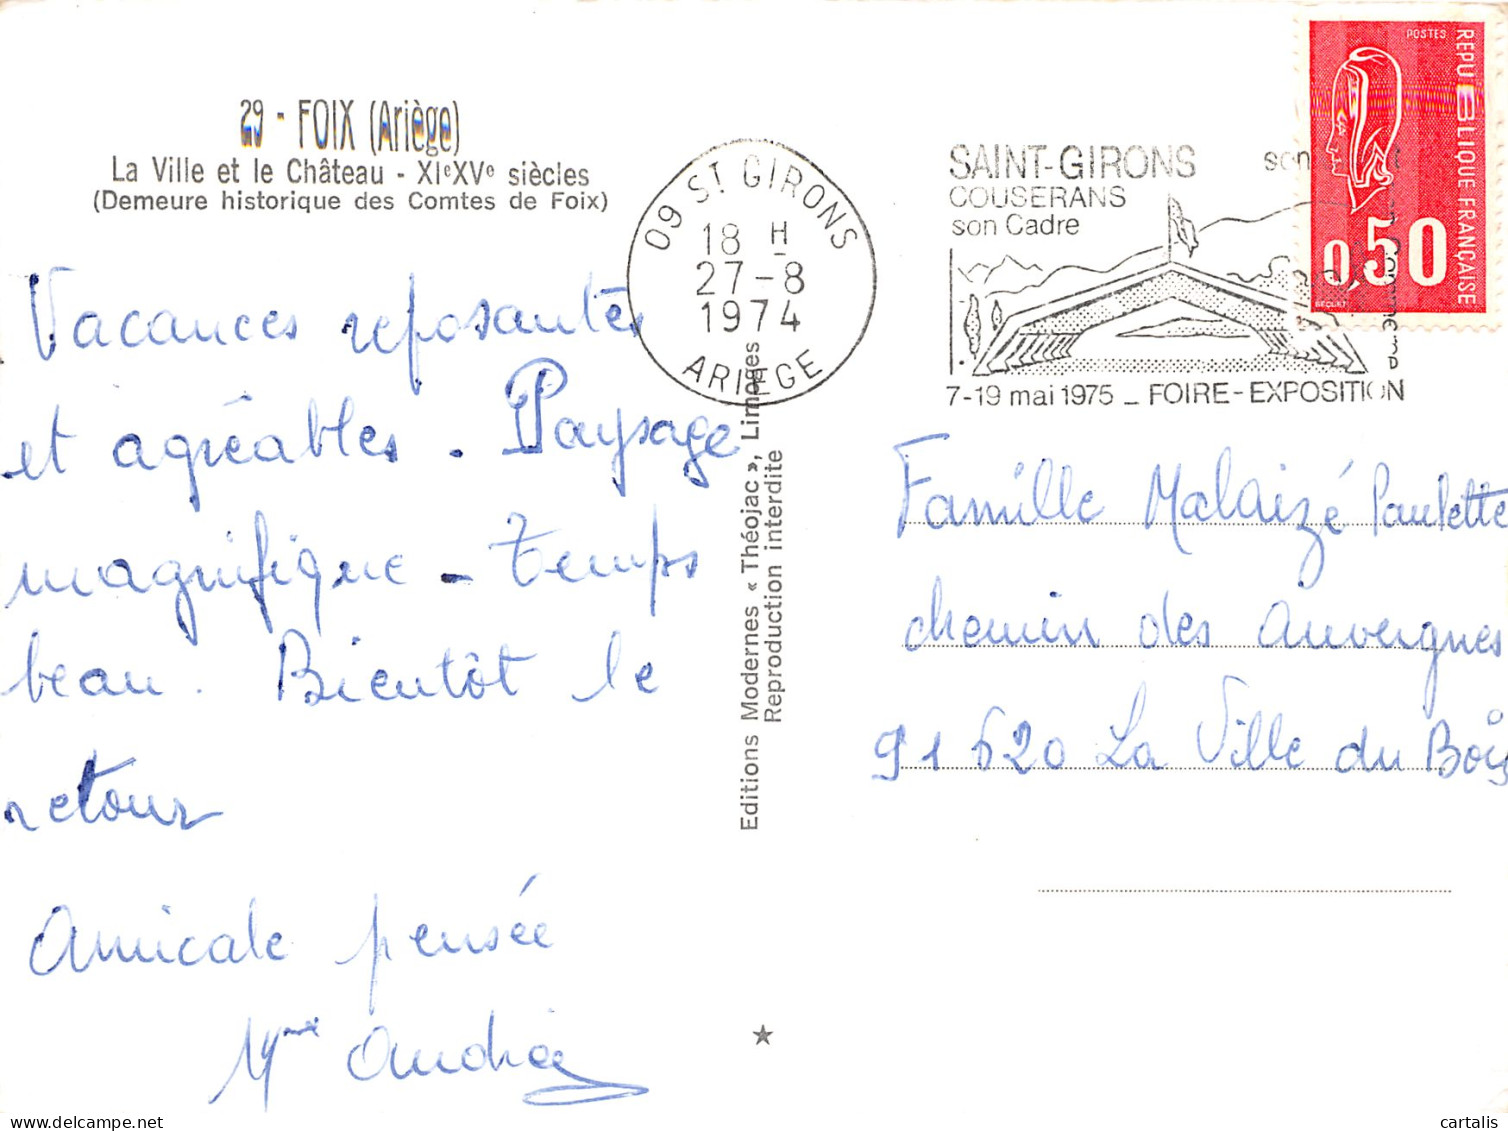 29 - FOIX (Ariège)
La Ville et le Château - XIeXVe siècles
(Demeure historique des Comtes de Foix)
Vacances reposantes
et agréables. Paysage
magnifique - Temps
beau. Bientôt le
retour
Amicale pensée
Mme
Editions Modernes « Théojac », Limoges
Reproduction interdite
09 ST GIRONS
18 H
27-8
1974
ARIEGE
SAINT-GIRONS
COUSERANS
son Cadre
son
7-19 mai 1975 _ FOIRE-EXPOSITION
POSTES
REPUBLIQUE FRANÇAISE
0,50
BEQUET
Famille Malaizé Paulette
chemin des Auvergnes
91620 La Ville du Bois
cartalis